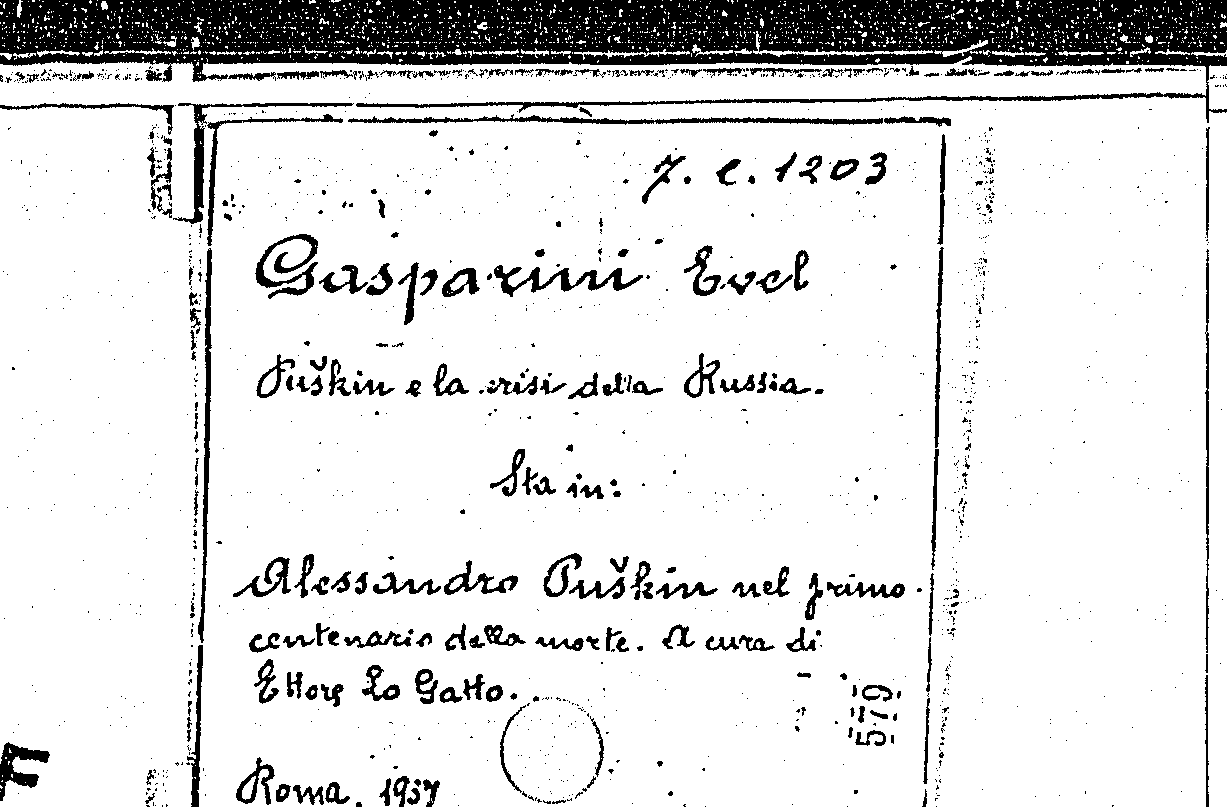 7. c. 1203
Gasparini Evel
Puškin e la crisi della Russia.
Sta in:
Alessandro Puškin nel primo
centenario della morte. A cura di
Ettore Lo Gatto.
579
Roma, 1937
F